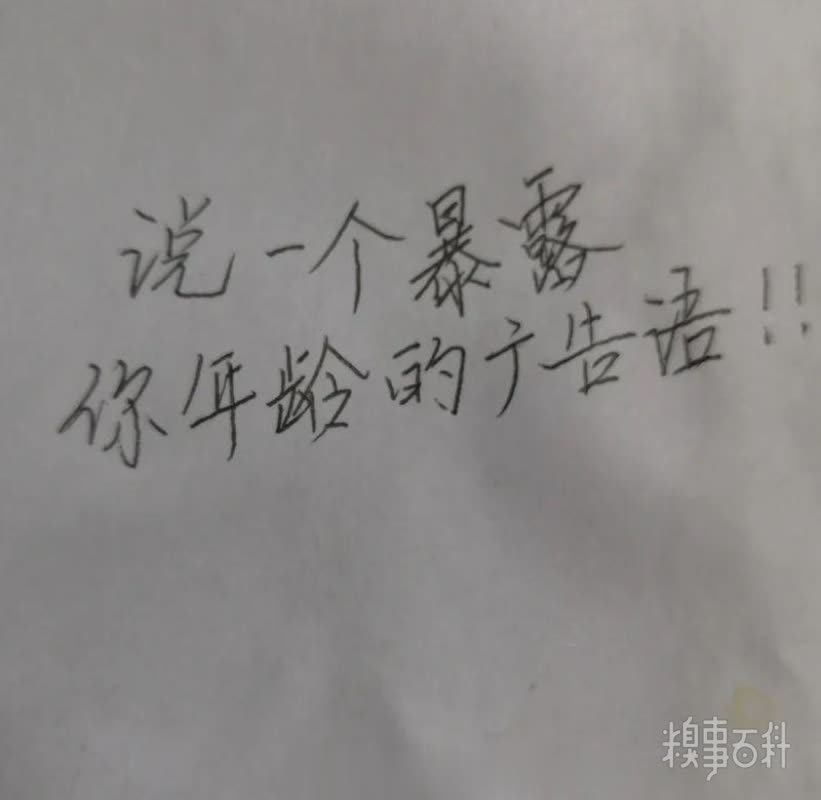 说一个暴露
你年龄的广告语!!
糗事百科